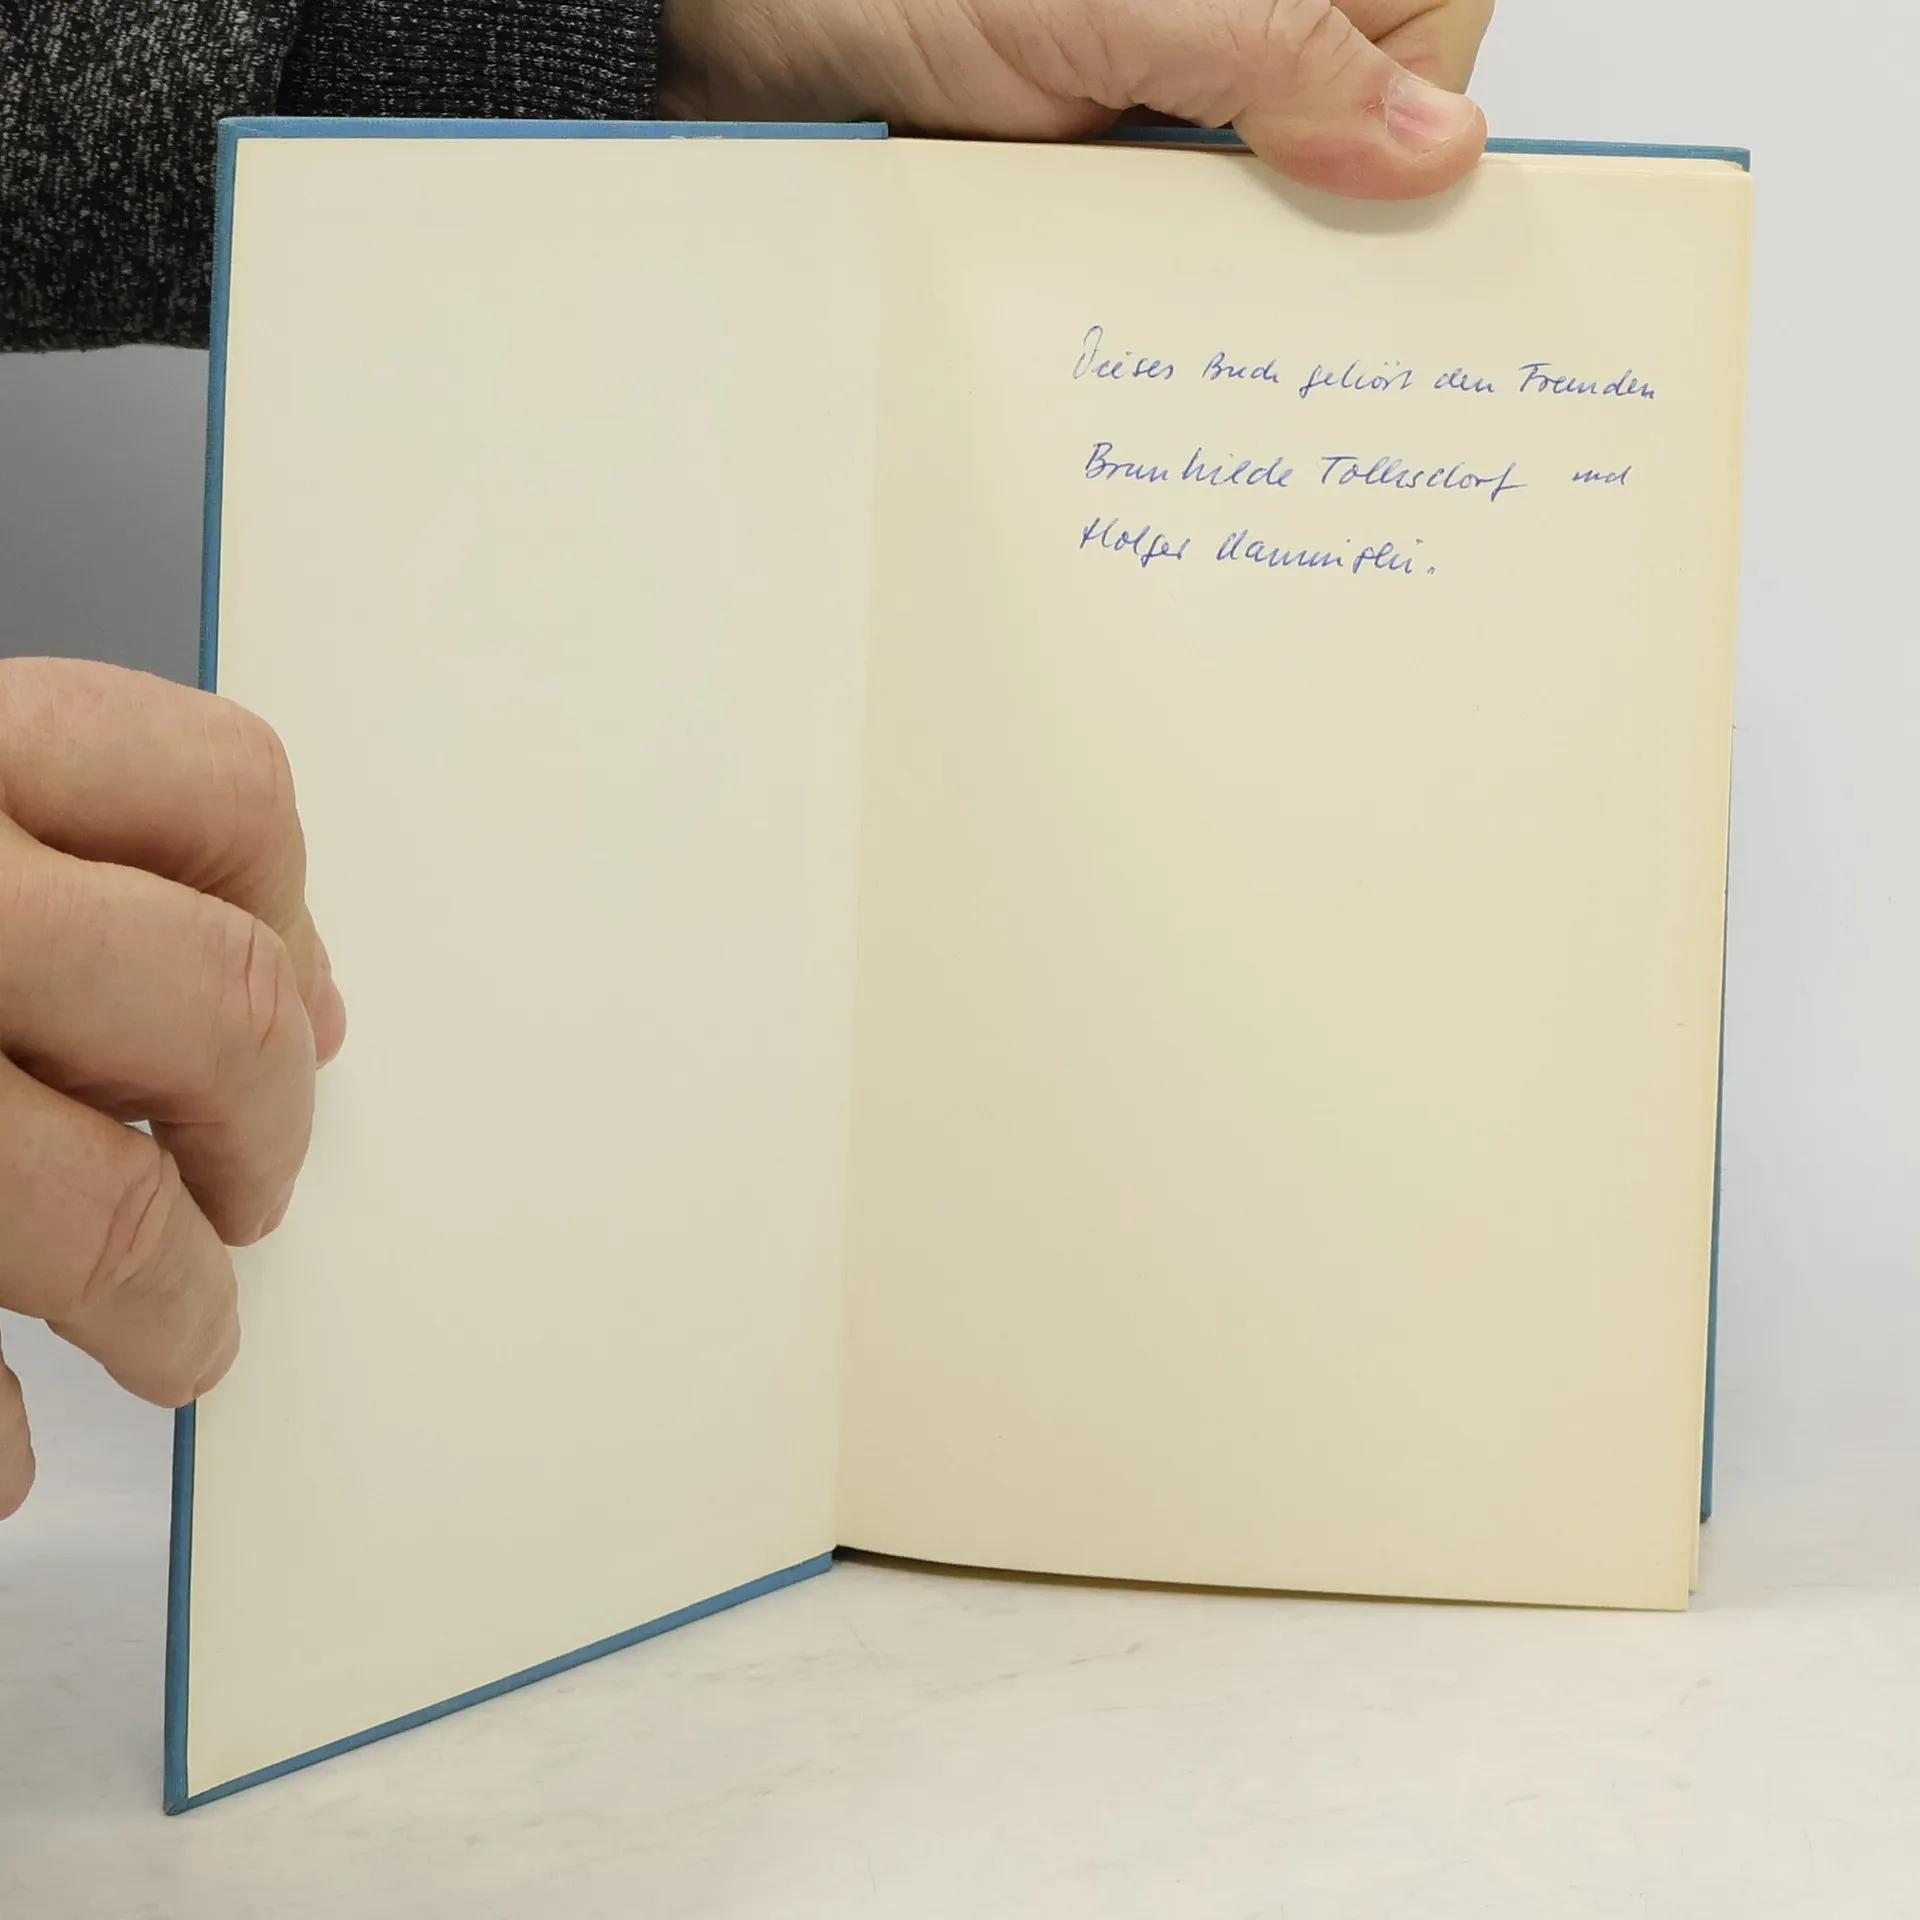 Dieses Buch gehört den Freunden
Brunhilde Tolksdorf und
Holger